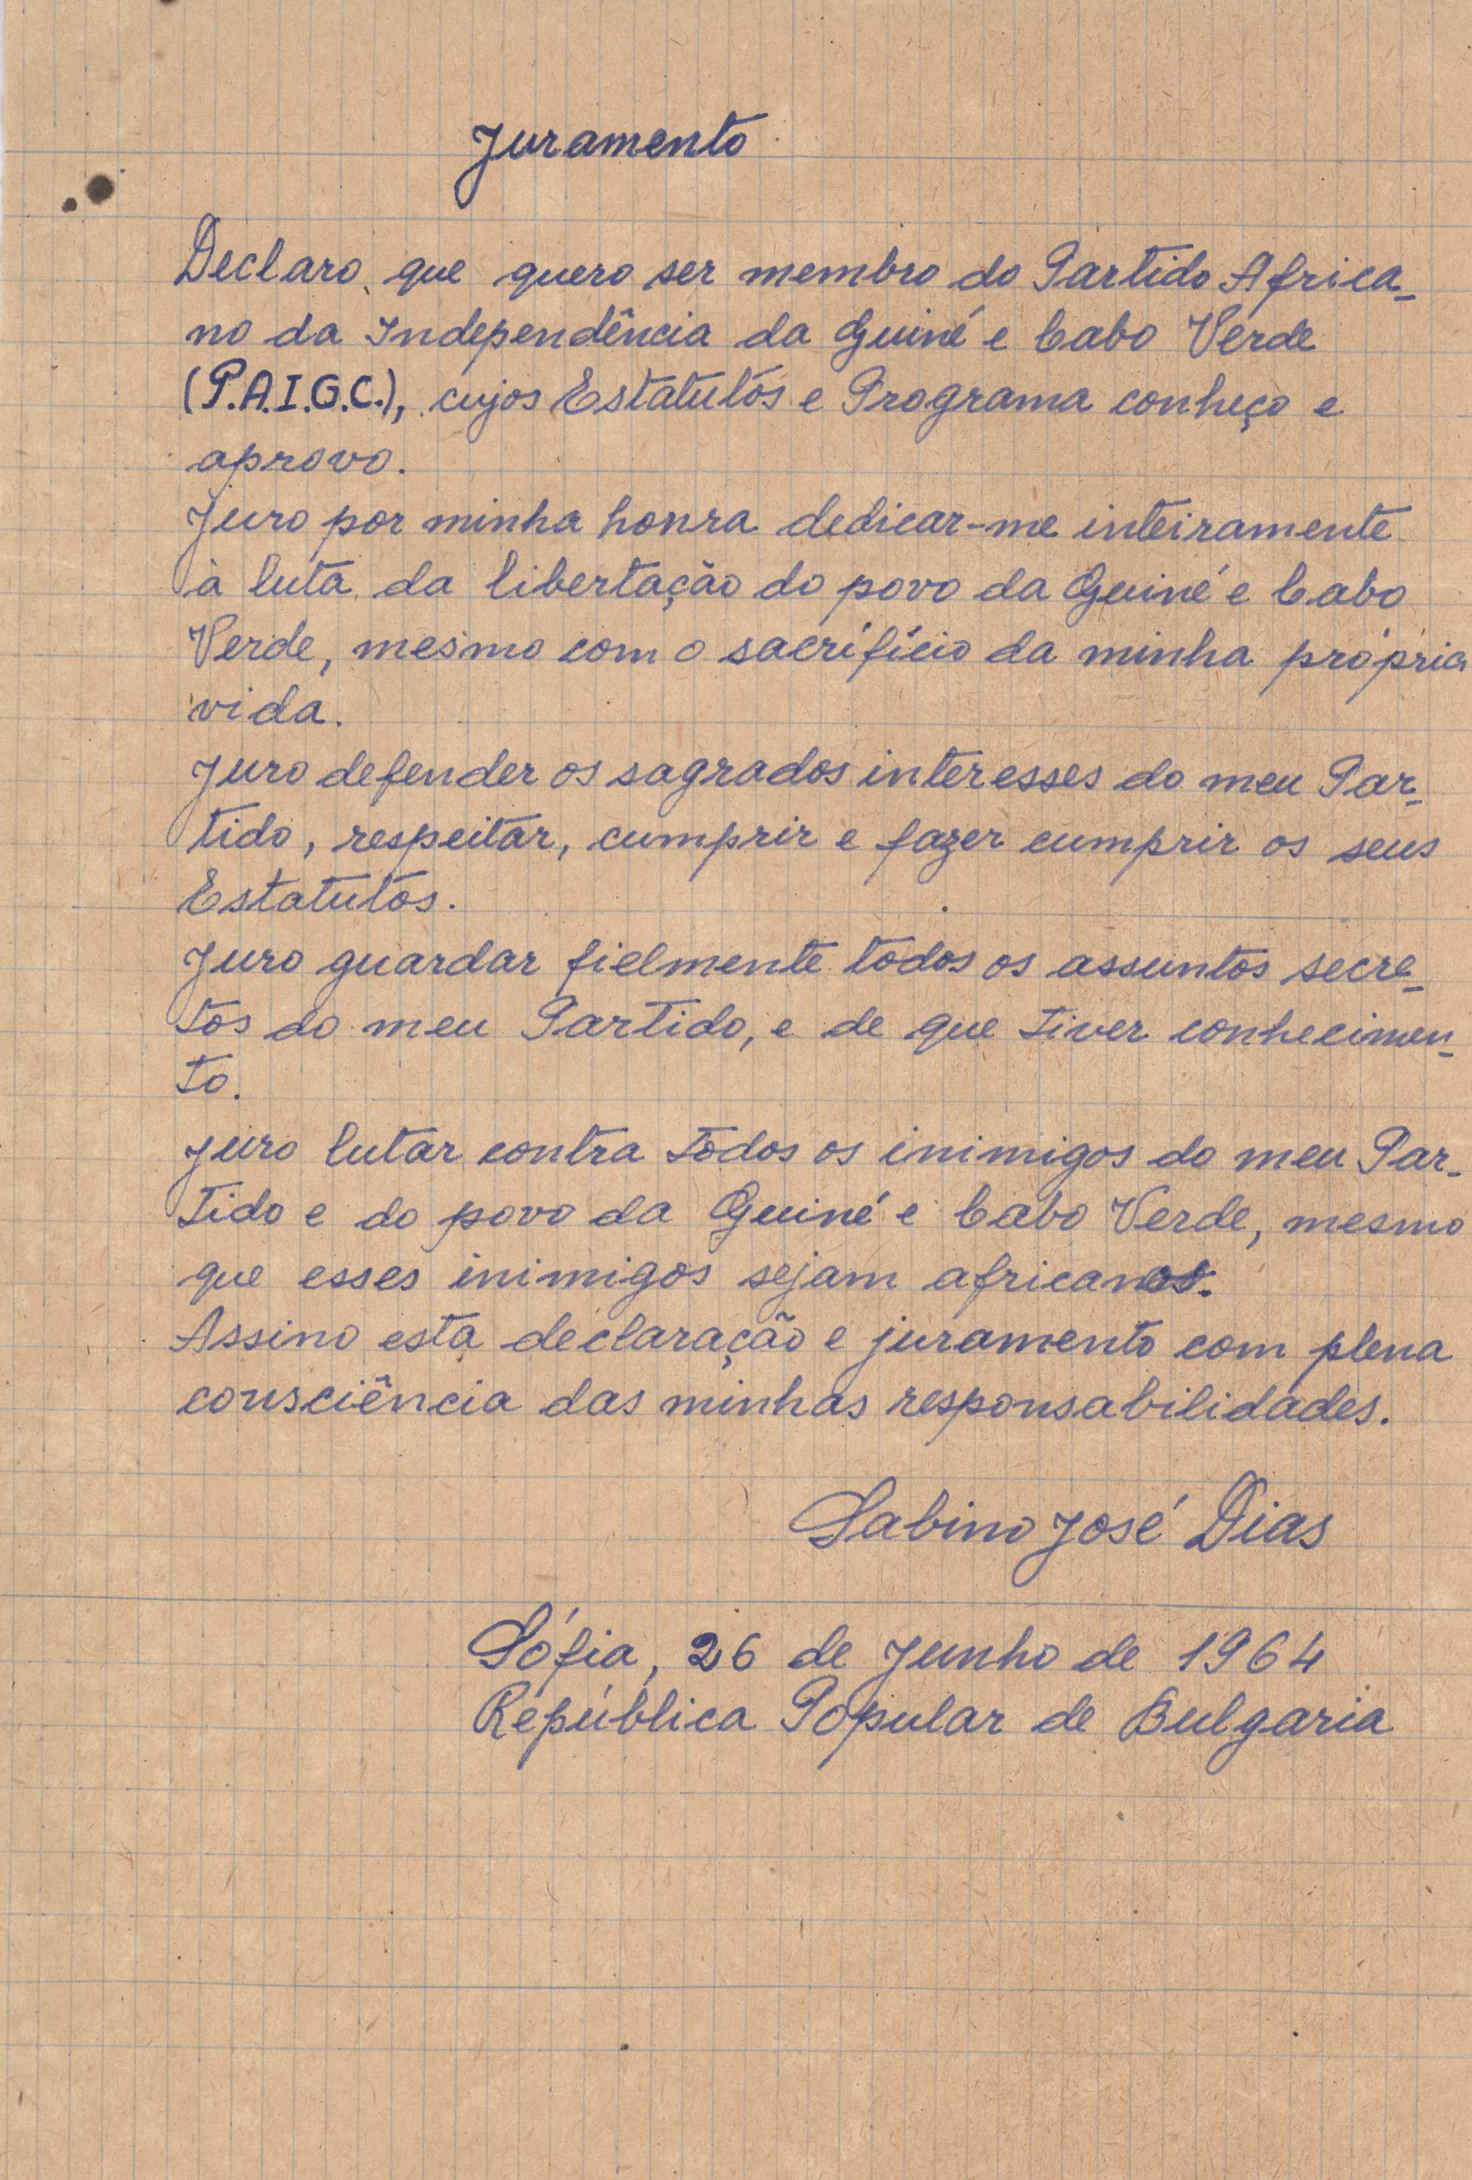 Juramento
Declaro que quero ser membro do Partido Africa-
no da Independência da Guiné e Cabo Verde
(P.A.I.G.C.), cujos Estatutos e Programa conheço e
aprovo.
Juro por minha honra dedicar-me inteiramente
à luta da libertação do povo da Guiné e Cabo
Verde, mesmo com o sacrifício da minha própria
vida.
Juro defender os sagrados interesses do meu Par-
tido, respeitar, cumprir e fazer cumprir os seus
Estatutos.
Juro guardar fielmente todos os assuntos secre-
tos do meu Partido, e de que tiver conhecimen-
to.
Juro lutar contra todos os inimigos do meu Par-
tido e do povo da Guiné e Cabo Verde, mesmo
que esses inimigos sejam africanos.
Assino esta declaração e juramento com plena
consciência das minhas responsabilidades.
Sabino José Dias
Sófia, 26 de Junho de 1964
República Popular de Bulgaria